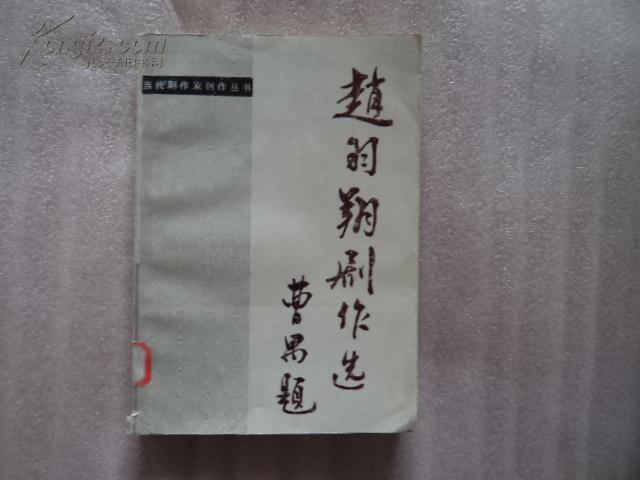 Kongfz.com
孔夫子旧书网
当代剧作家创作丛书
趙羽翔剧作选
曹禺题